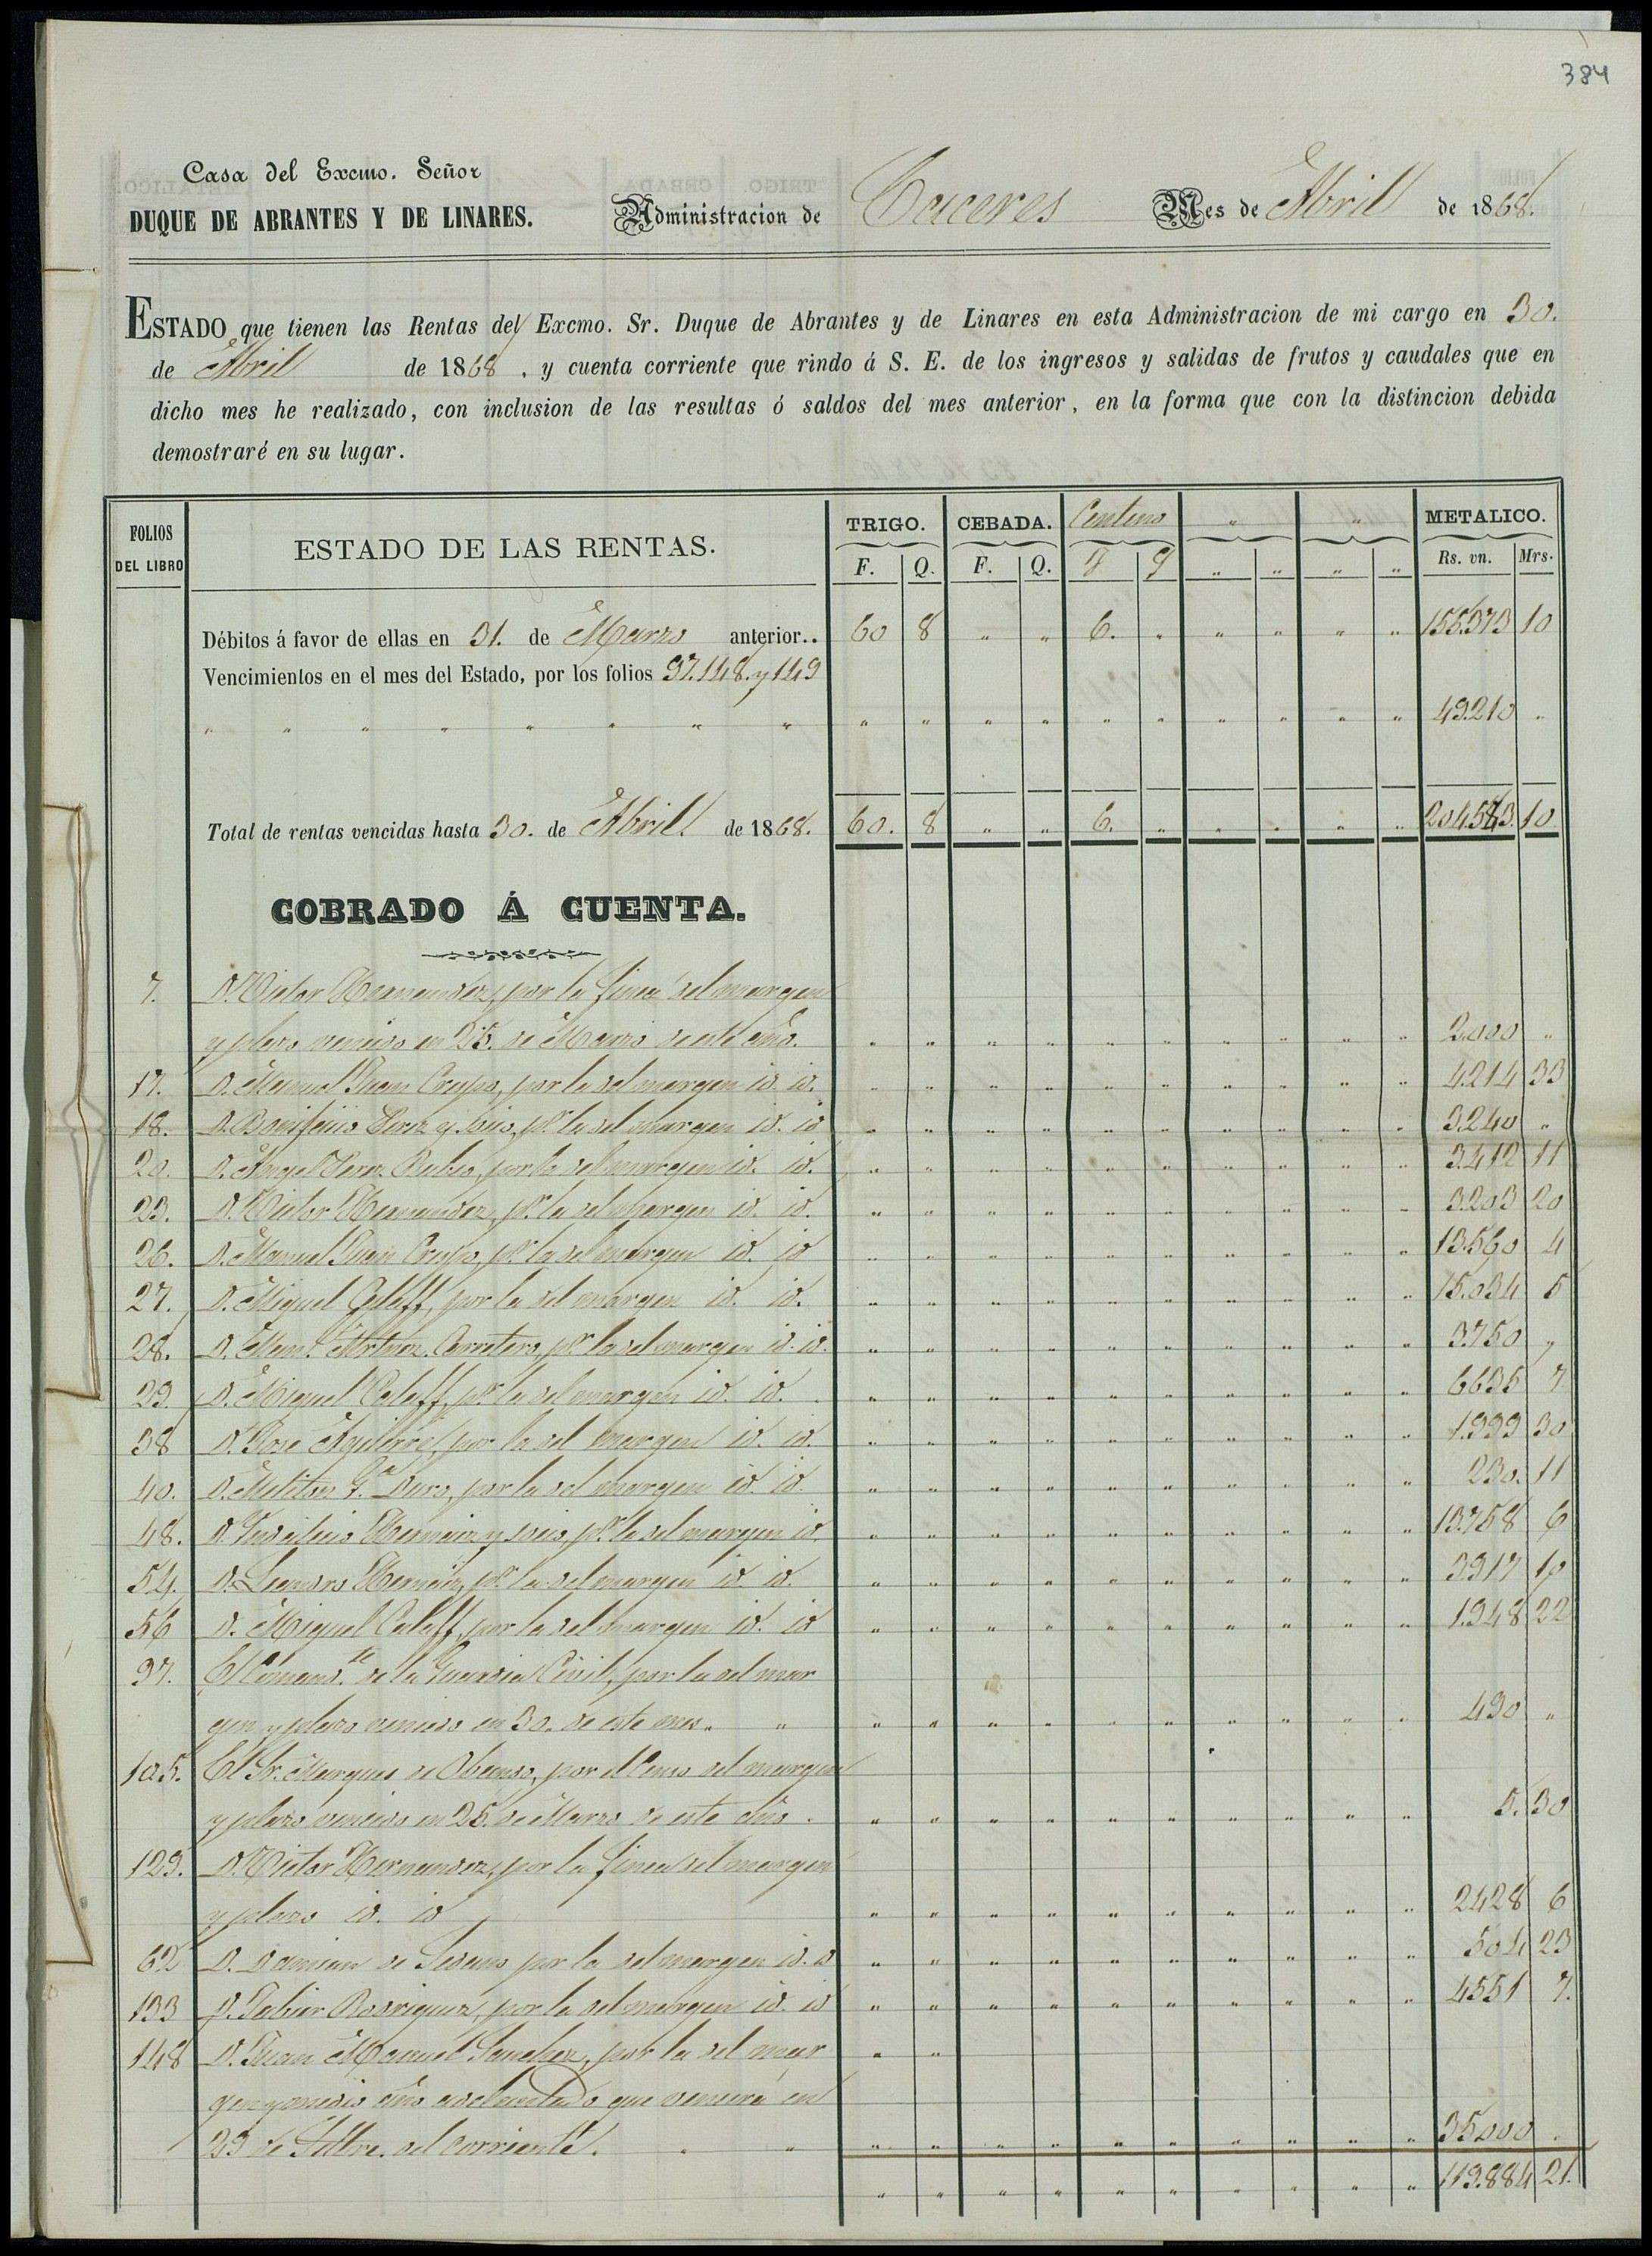 384
Casa del Excmo. Señor
DUQUE DE ABRANTES Y DE LINARES. Administracion de Caceres Mes de Abril de 1868.
ESTADO que tienen las Rentas del Excmo. Sr. Duque de Abrantes y de Linares en esta Administracion de mi cargo en 30.
de Abril de 1868, y cuenta corriente que rindo á S. E. de los ingresos y salidas de frutos y caudales que en
dicho mes he realizado, con inclusion de las resultas ó saldos del mes anterior, en la forma que con la distincion debida
demostraré en su lugar.
FOLIOS DEL LIBRO ESTADO DE LAS RENTAS. TRIGO. CEBADA. Centeno " " METALICO.
F. Q. F. Q. F Q " " " " Rs. vn. Mrs.
Débitos á favor de ellas en 31. de Marzo anterior.. 60 8 " " 6. " " " " " 155.373 10
Vencimientos en el mes del Estado, por los folios 97.148. y 149
" " " " " " " " " " " " " " " " " " 49.210 "
Total de rentas vencidas hasta 30. de Abril de 1868. 60. 8 " " 6. " " " " " 204.583. 10
COBRADO Á CUENTA.
7. D. Victor Hernandez, por la finca del margen
y plazo vencido en 25. de Marzo de este año. " " " " " " " " " " 2.000 "
17. D. Manuel Juan Crespo, por la del margen id. id. " " " " " " " " " " 4.214 33
18. D. Bonifacio Perez y socio, pr. la del margen id. id " " " " " " " " " " 3.240 "
20. D. Angel Perez Rubio, por la del margen id. id. " " " " " " " " " " 3.412 11
23. D. Victor Hernandez, pr. la del margen id. id. " " " " " " " " " " 3.203 20
26. D. Manuel Juan Crespo, pr. la del margen id. id " " " " " " " " " " 13.560 4
27. D. Miguel Calaff, por la del margen id. id. " " " " " " " " " " 15.034 5
28. D. Man.l Mrtnez. Carretero, pr. la del margen id. id. " " " " " " " " " " 3.750 "
29. D. Miguel Calaff, pr. la del margen id. id. " " " " " " " " " " 6635 7
38 D. José Aguirre, por la del margen id. id. " " " " " " " " " " 1.999 30
40. D. Meliton G.a Duro, por la del margen id. id. " " " " " " " " " " 230. 11
48. D. Indalecio Hernaiz y socio, pr. la del margen id. " " " " " " " " " " 13.758 6
54. D. Leandro Hernaiz, pr. la del margen id. id. " " " " " " " " " " 3317 10
56 D. Miguel Calaff, por la del margen id. id " " " " " " " " " " 1.348 22
97. El Comand.te de la Guardia Civil, por la del mar
gen y plazo vencido en 30. de este mes. " " " " " " " " " " " 490 "
105. El Sr. Marques de Obando, por el Censo del margen
y plazo vencido en 25. de Marzo de este año. " " " " " " " " " " 5. 30
129. D. Victor Hernandez, por la finca del margen
y plazo id. id " " " " " " " " " " 2428 6
62 D. Damian de Ledesma por la del margen id. id " " " " " " " " " " 504 23
133 D. Javier Rodriguez, por la del margen id. id " " " " " " " " " " 4551 7.
148 D. Juan Manuel Sanchez, por la del mar " "
gen y medio año adelantado que vencerá en
29 de Stbre. del corriente. " " " " " " " " " " " 35.000 "
" " " " " " " " " " 119.884 21.